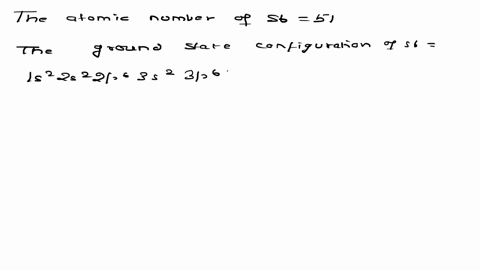 The atomic number of Sb = 51
The ground state configuration of sb =
1s² 2s² 2p⁶ 3s² 3p⁶